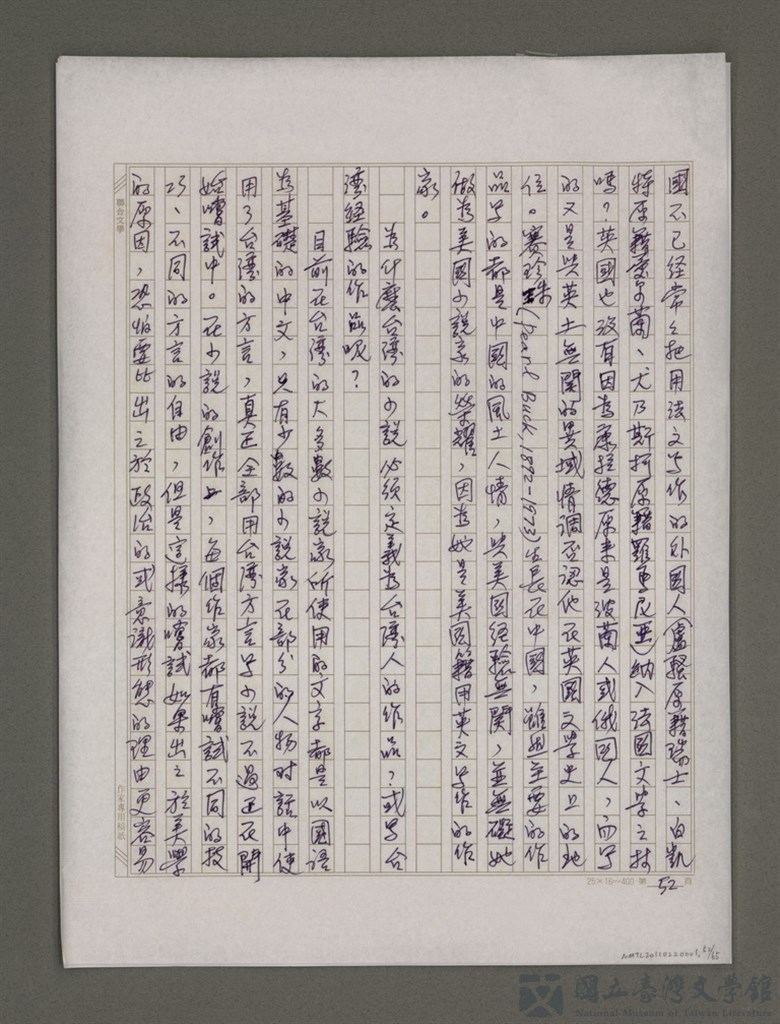 國不已経常々把用法文写作的外國人(盧騷原籍瑞士、白凱
特原籍愛尔蘭、尤乃斯柯原籍羅馬尼亞)納入法國文学之林
嗎?英國也没有因為康拉德原来是波蘭人或俄國人,而写
的又是與英土無関的異域情調否認他在英國文学史上的地
位。賽珍珠(Pearl Buck, 1892-1973)生長在中國,雖然主要的作
品写的都是中國的風土人情,與美國経驗無関,並無礙她
做為美國小説家的榮耀,因為她是美國籍用英文写作的作
家。
為什麼台灣的小説必須定義為台灣人的作品,或写台
灣経驗的作品呢?
目前在台灣的大多數小説家所使用的文字都是以國語
為基礎的中文,只有少數的小説家在部分的人物对話中使
用了台灣的方言,真正全部用台灣方言写小説不過正在開
始嚐試中。在小説的創作上,每個作家都有嚐試不同的技
巧、不同的方言的自由,但是這樣的嚐試如果出之於美學
的原因,恐怕要比出之於政治的或意識形態的理由更容易
聯合文學
作家專用稿紙
25×16=400 第 52 頁
NMTL20110220001, 52/65
國立臺灣文學館
National Museum of Taiwan Literature